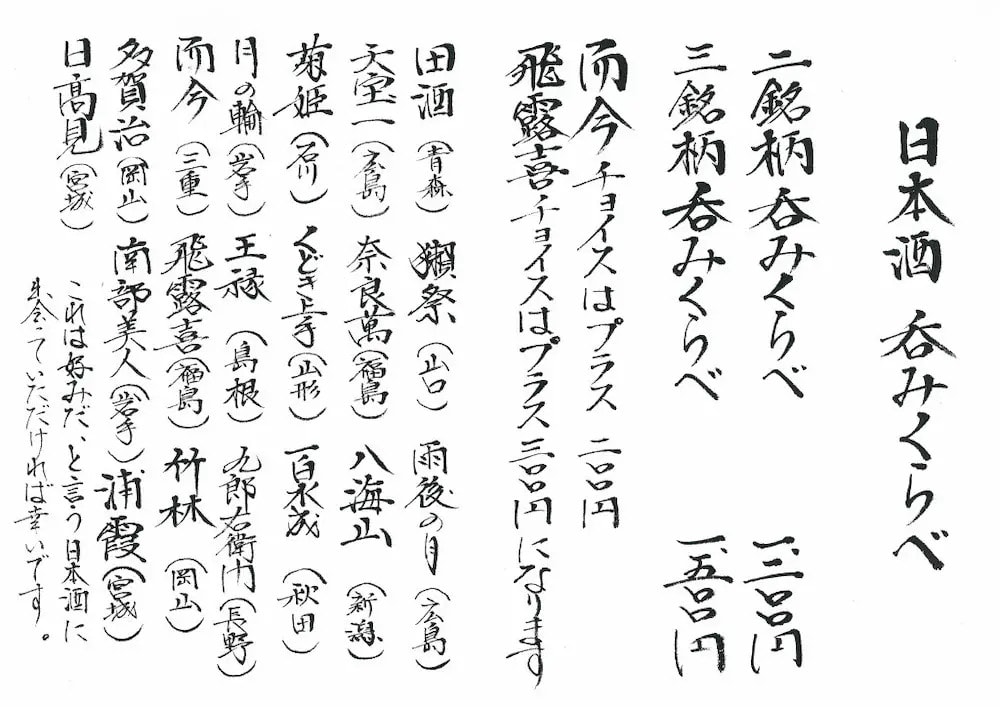 日本酒 呑みくらべ
二銘柄呑みくらべ 一、三〇〇円
三銘柄呑みくらべ 一、五〇〇円
而今チョイスはプラス 二〇〇円
飛露喜チョイスはプラス三〇〇円になります
田酒(青森) 獺祭(山口) 雨後の月(広島)
天宝一(広島) 奈良萬(福島) 八海山(新潟)
菊姫(石川) くどき上手(山形) 一白水成(秋田)
月の輪(岩手) 王禄(島根) 九郎右衛門(長野)
而今(三重) 飛露喜(福島) 竹林(岡山)
多賀治(岡山) 南部美人(岩手) 浦霞(宮城)
日高見(宮城)
これは好みだ、と言う日本酒に
出会っていただければ幸いです。